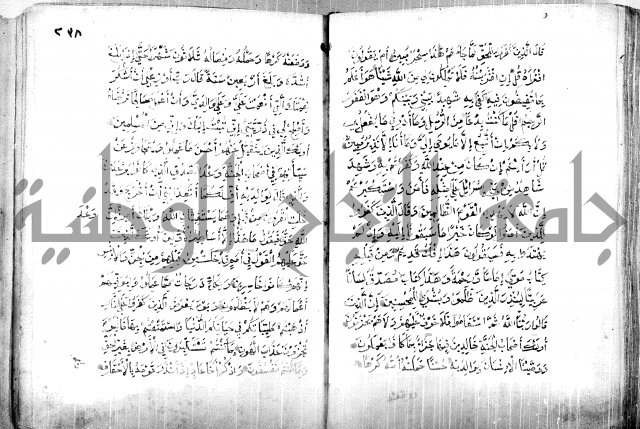 قال الذين كفروا للحق لما جاءهم هذا سحر مبين ام يقولون
افتراه قل ان افتريته فلا تملكون لي من الله شيئا هو اعلم
بما تفيضون فيه كفى به شهيدا بيني وبينكم وهو الغفور
الرحيم قل ما كنت بدعا من الرسل وما ادري ما يفعل بي
ولا بكم ان اتبع الا ما يوحى الي وما انا الا نذير مبين
قل ارايتم ان كان من عند الله وكفرتم به وشهد
شاهد من بني اسرائيل على مثله فامن واستكبرتم
ان الله لا يهدي القوم الظالمين وقال الذين كفروا
للذين امنوا لو كان خيرا ما سبقونا اليه واذ لم
يهتدوا به فسيقولون هذا افك قديم ومن قبله
كتاب موسى اماما ورحمة وهذا كتاب مصدق لسانا
عربيا لينذر الذين ظلموا وبشرى للمحسنين ان الذين
قالوا ربنا الله ثم استقاموا فلا خوف عليهم ولا هم يحزنون
اولئك اصحاب الجنة خالدين فيها جزاء بما كانوا يعملون
ووصينا الانسان بوالديه حسنا حملته امه كرها
ووضعته
٢٣٨
ووضعته كرها وحمله وفصاله ثلاثون شهرا حتى اذا بلغ
اشده وبلغ اربعين سنة قال رب اوزعني ان اشكر
نعمتك التي انعمت علي وعلى والدي وان اعمل صالحا ترضاه
واصلح لي في ذريتي اني تبت اليك واني من المسلمين
اولئك الذين يتقبل عنهم احسن ما عملوا ويتجاوز عن
سيئاتهم في اصحاب الجنة وعد الصدق الذي كانوا يوعدون
والذي قال لوالديه اف لكما اتعدانني ان اخرج وقد
خلت القرون من قبلي وهما يستغيثان الله ويلك امن ان وعد
الله حق فيقول ما هذا الا اساطير الاولين اولئك الذين
حق عليهم القول في امم قد خلت من قبلهم من الجن والانس
انهم كانوا خاسرين ولكل درجات مما عملوا وليوفيهم
اعمالهم وهم لا يظلمون ويوم يعرض الذين كفروا على النار
اذهبتم طيباتكم في حياتكم الدنيا واستمتعتم بها فاليوم
تجزون عذاب الهون بما كنتم تستكبرون في الارض بغير الحق
وبما كنتم تفسقون واذكر اخا عاد اذ انذر قومه بالاحقاف
جامعة النجاح الوطنية